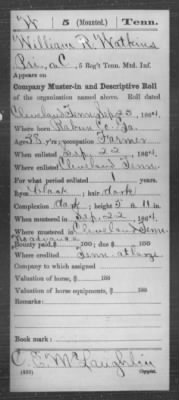 W | 5 (Mounted.) | Tenn.
William R. Watkins
Pri., Co. C, 5 Reg't Tenn. Mtd. Inf.
Appears on
Company Muster-in and Descriptive Roll
of the organization named above. Roll dated
Cleveland Tenn Sep 23, 1864.
Where born Rabun Co. Ga.
Age 38 y'rs; occupation Farmer
When enlisted Sep. 22, 1864.
Where enlisted Cleveland Tenn.
For what period enlisted 1 years.
Eyes black; hair dark
Complexion dark; height 5 ft. 11 in.
When mustered in Sep. 22, 1864.
Where mustered in Cleveland Tenn
Bounty paid $ 100; due $ 100
Where credited Tenn at large
Company to which assigned
Valuation of horse, $ 100
Valuation of horse equipments, $ 100
Remarks:
Book mark:
C. E. McLaughlin
Copyist.